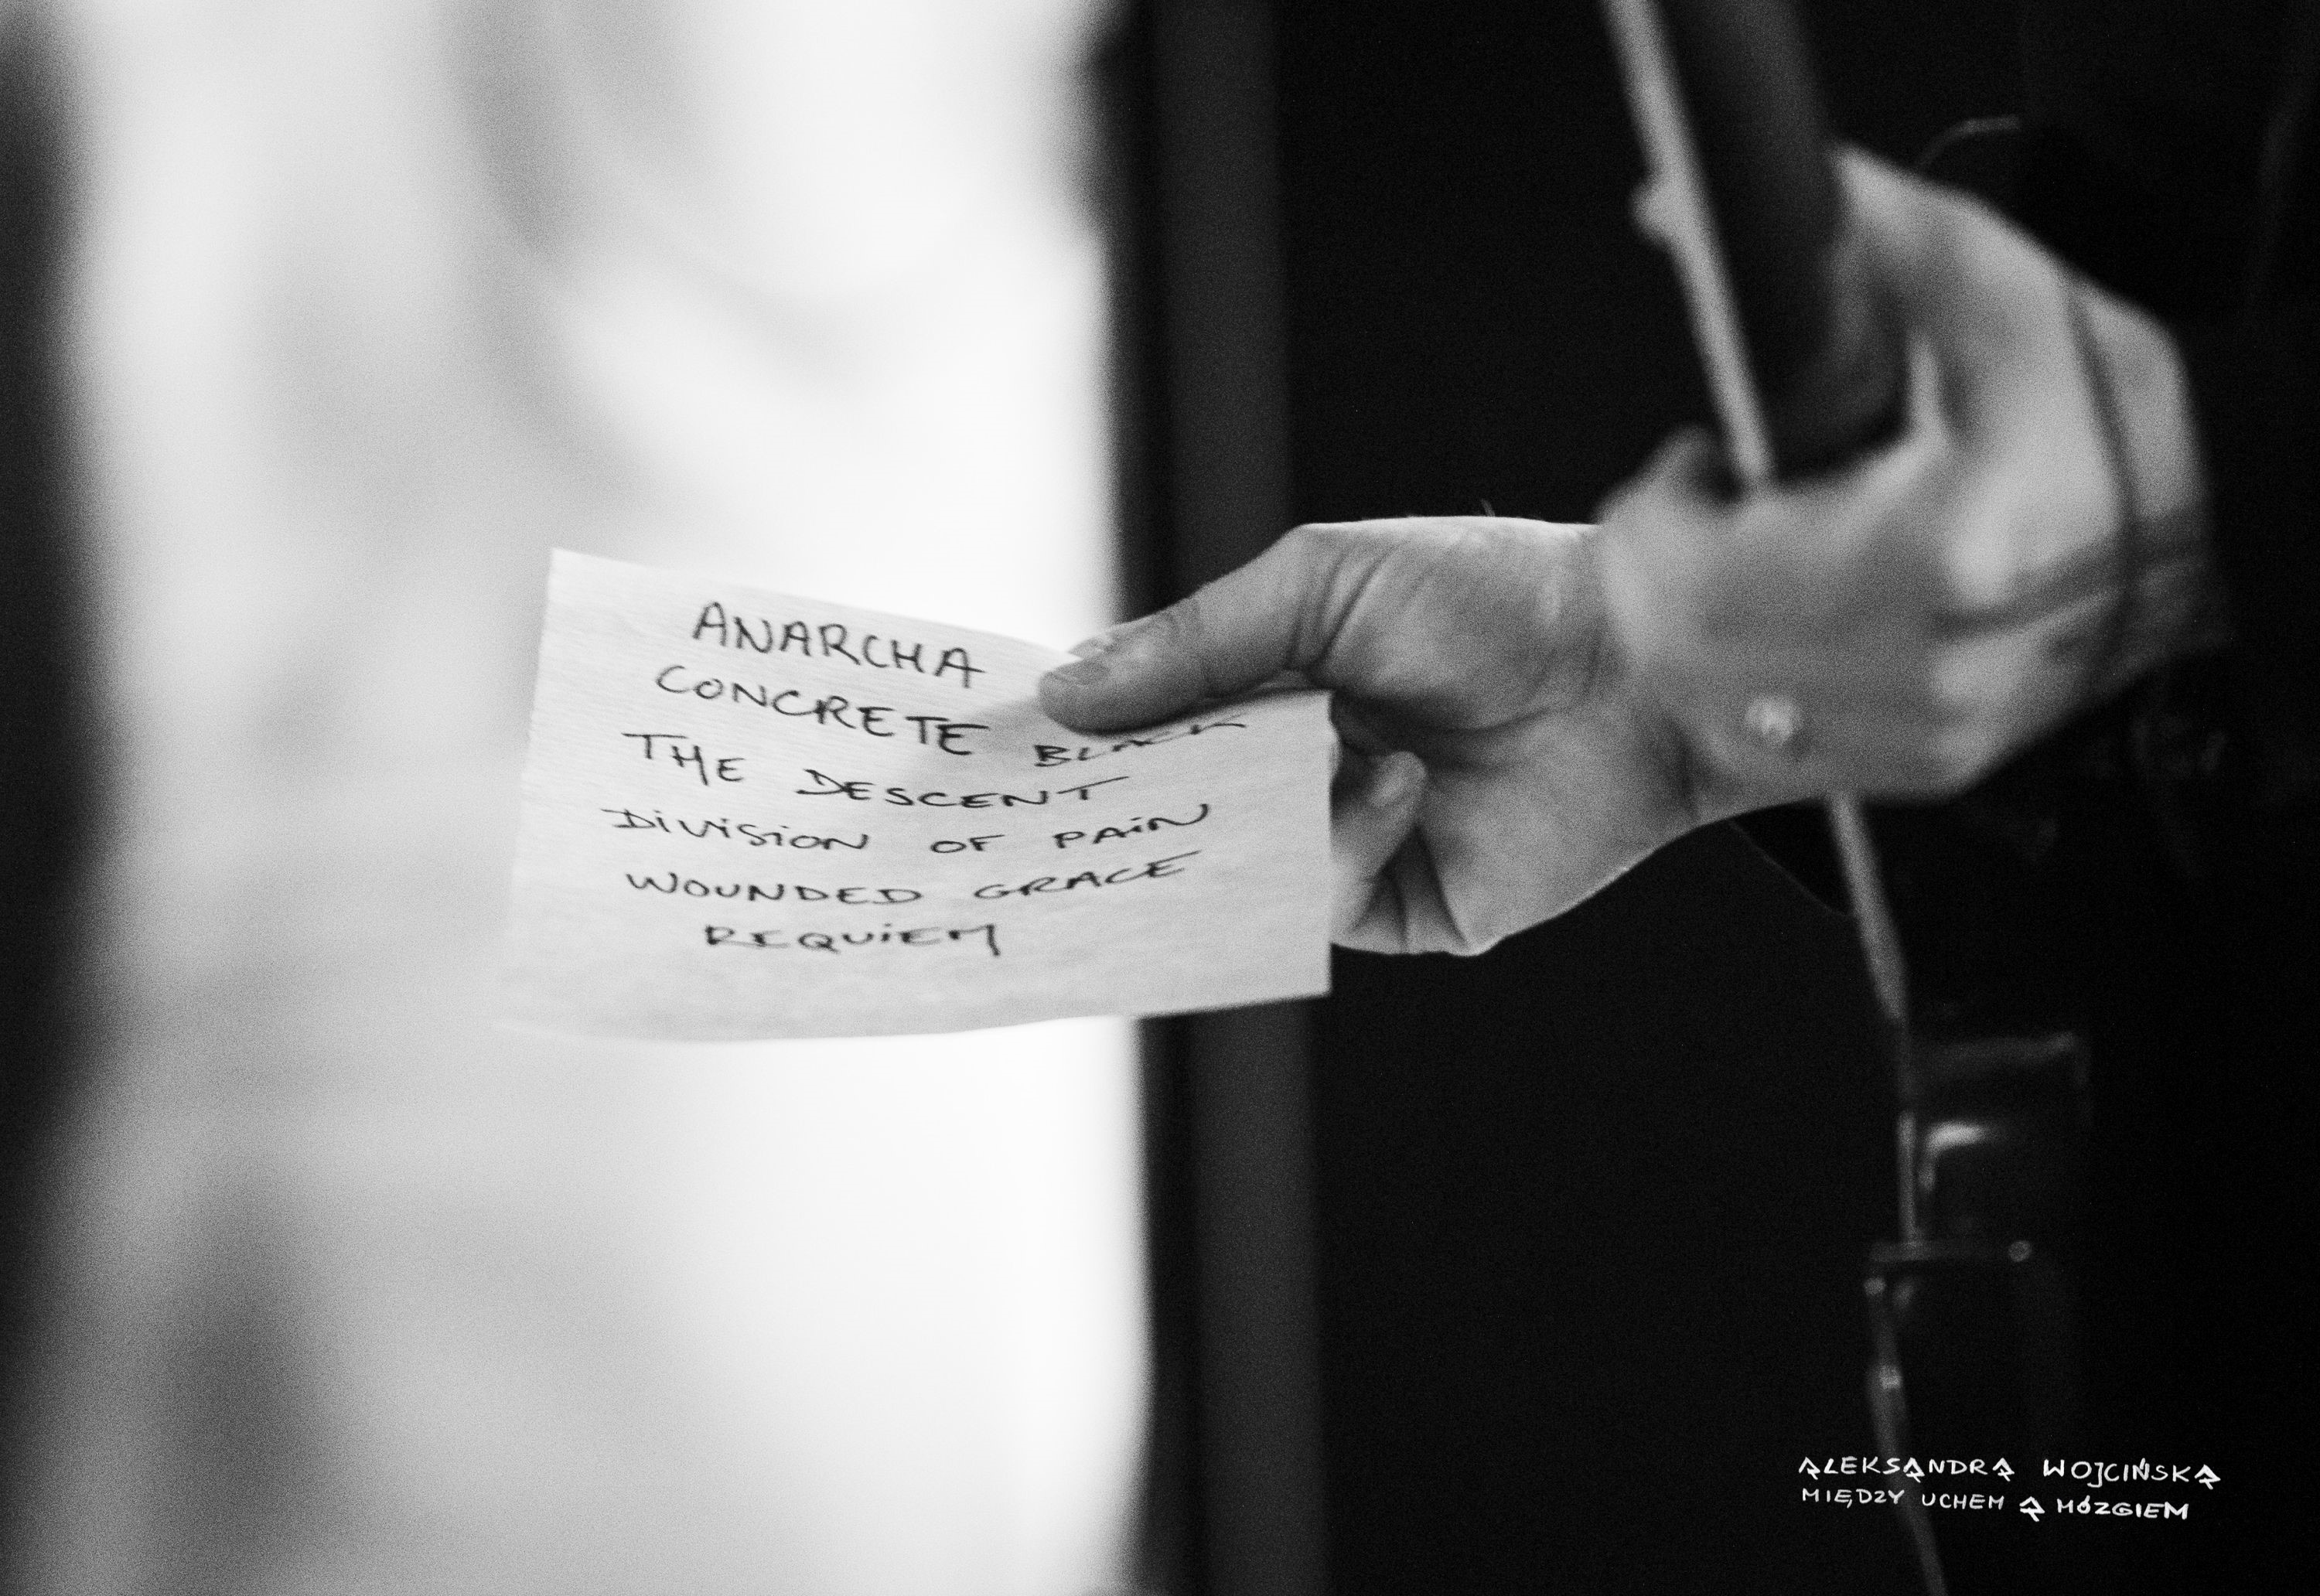 ANARCHA
CONCRETE BLACK
THE DESCENT
DIVISION OF PAIN
WOUNDED GRACE
REQUIEM
ALEKSANDRA WOJCIŃSKA
MIĘDZY UCHEM A MÓZGIEM